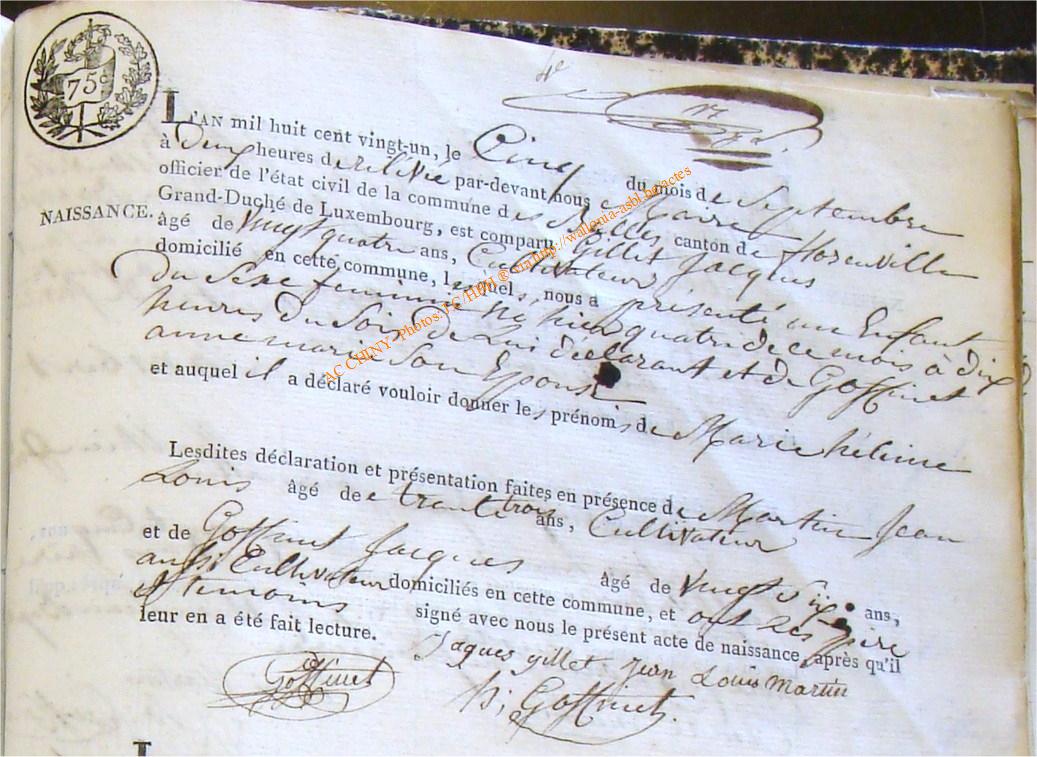 75c
4e
NAISSANCE.
L'AN mil huit cent vingt-un, le Cinq du mois de Septembre
à deux heures de relevée par-devant nous Maire
officier de l'état civil de la commune des Bulles canton de florenville
Grand-Duché de Luxembourg, est comparu Gillet Jacques
âgé de vingt quatre ans, Cultivateur
domicilié en cette commune, lesquels nous a présenté un Enfant
du Sexe feminin né hier quatre de ce mois à dix
heures du Soir de Lui déclarant et de Goffinet
anne marie Son Epouse
et auquel il a déclaré vouloir donner les prénoms de Marie hélène
Lesdites déclaration et présentation faites en présence de Martin Jean
Louis âgé de trente trois ans, Cultivateur
et de Goffinet Jacques âgé de vingt Six ans,
aussi Cultivateur domiciliés en cette commune, et ont Les père
et temoins signé avec nous le présent acte de naissance, après qu'il
leur en a été fait lecture.
Jaques gillet Jean Louis Martin
Goffinet
Goffinet.
AC CHINY- Photos J-C/HPM ® via http://wallonia-asbl.be/actes